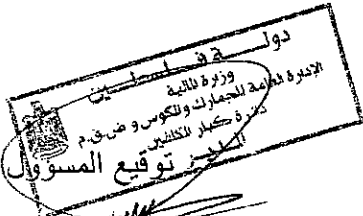 دولـــة فـلـسـطـيـن
وزارة المالية
الإدارة العامة للجمارك والمكوس و ض.ق.م
دائرة كبار المكلفين
توقيع المسؤول